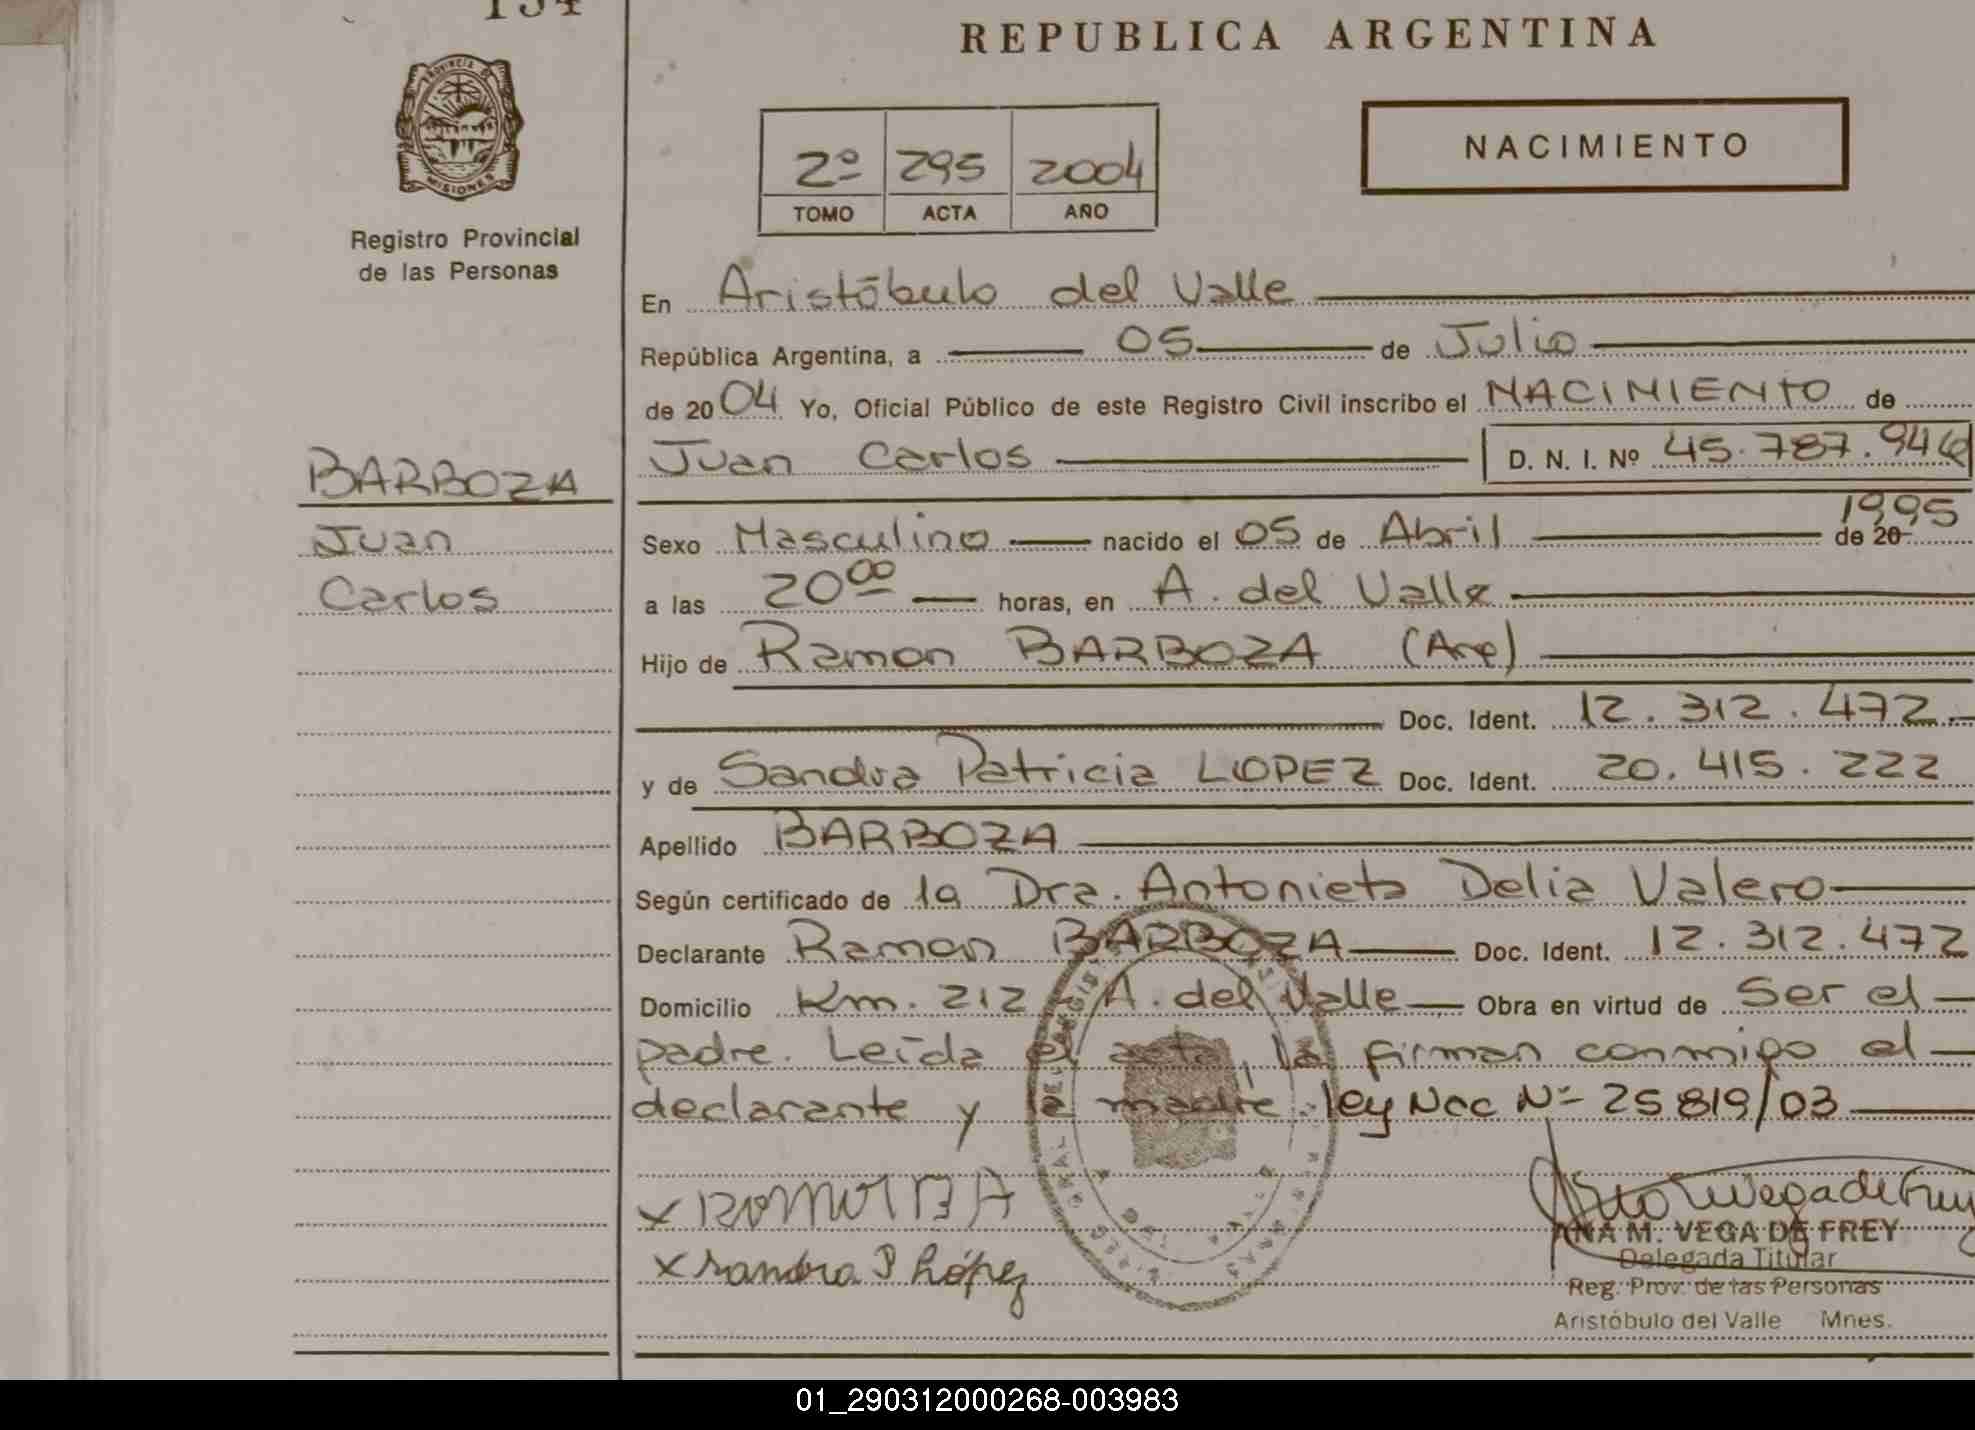 134
REPUBLICA ARGENTINA
PROVINCIA DE
MISIONES
Registro Provincial
de las Personas
2º 295 2004
TOMO ACTA AÑO
NACIMIENTO
En Aristóbulo del Valle
República Argentina, a 05 de Julio
de 2004 Yo, Oficial Público de este Registro Civil inscribo el NACIMIENTO de
Juan Carlos D. N. I. Nº 45.787.946
BARBOZA
Juan
Carlos
1995
Sexo Masculino nacido el 05 de Abril de 20
a las 20 00 horas, en A. del Valle
Hijo de Ramon BARBOZA (Arg)
Doc. Ident. 12.312.472
y de Sandra Patricia LOPEZ Doc. Ident. 20.415.222
Apellido BARBOZA
Según certificado de la Dra. Antonieta Delia Valero
Declarante Ramon BARBOZA Doc. Ident. 12.312.472
Domicilio Km. 212 A. del Valle Obra en virtud de Ser el
padre. Leída el acta, la firman conmigo el
declarante y la madre. ley Nac Nº 25819/03
X
X Sandra P López
ANA M. VEGA DE FREY
Delegada Titular
Reg. Prov. de las Personas
Aristóbulo del Valle Mnes.
01_290312000268-003983